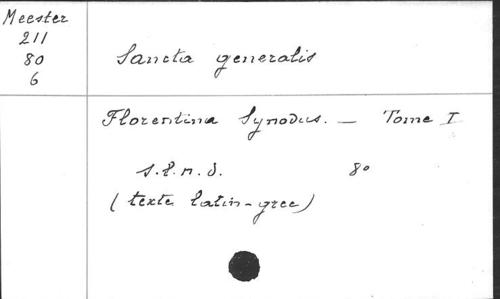 Meester
211
80
6
Sancta generalis
Florentina Synodus. — Tome I
s.l.n.d. 8°
(texte latin-grec)